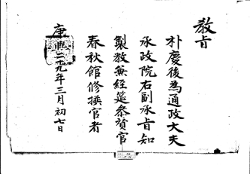 敎旨
朴慶後爲通政大夫
承政院右副承旨知
製敎兼經筵參贊官
春秋館修撰官者
康熙二十九年三月初七日